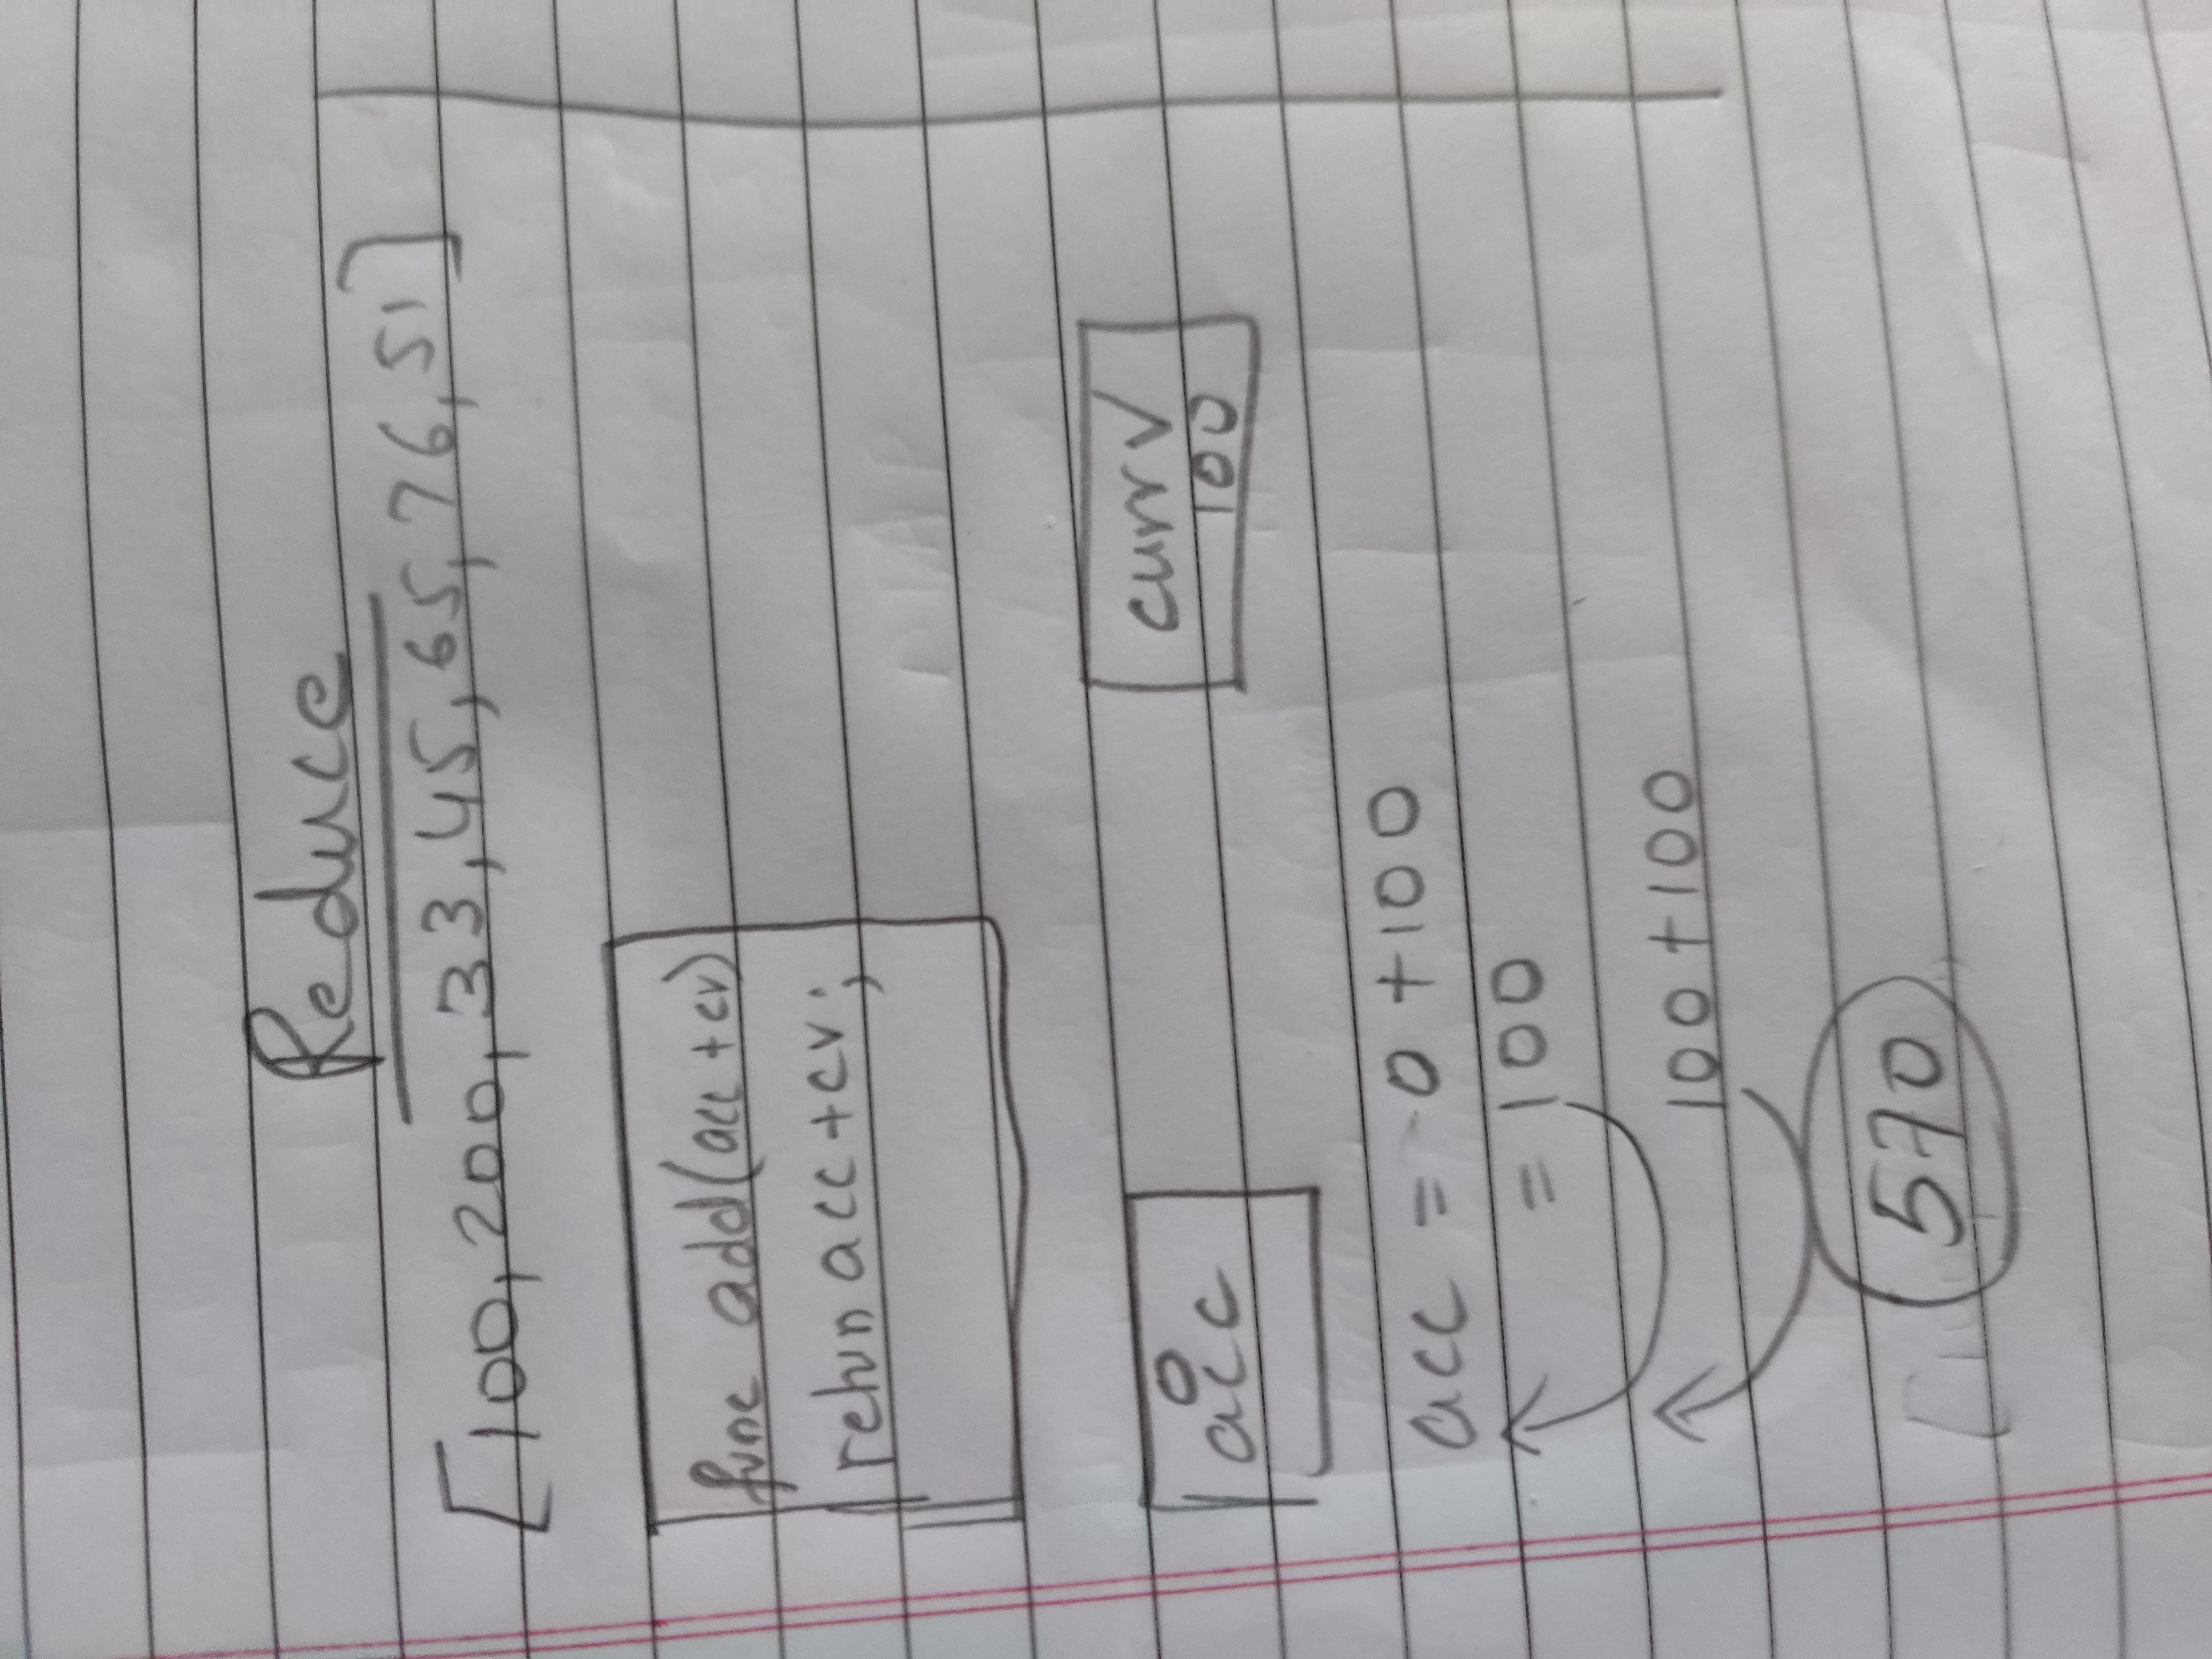 Reduce
[100, 200, 33, 45, 65, 76, 51]
func add(acc + cv)
retun acc + cv;
0
acc
curr V
100
acc = 0 + 100
= 100
100 + 100
570